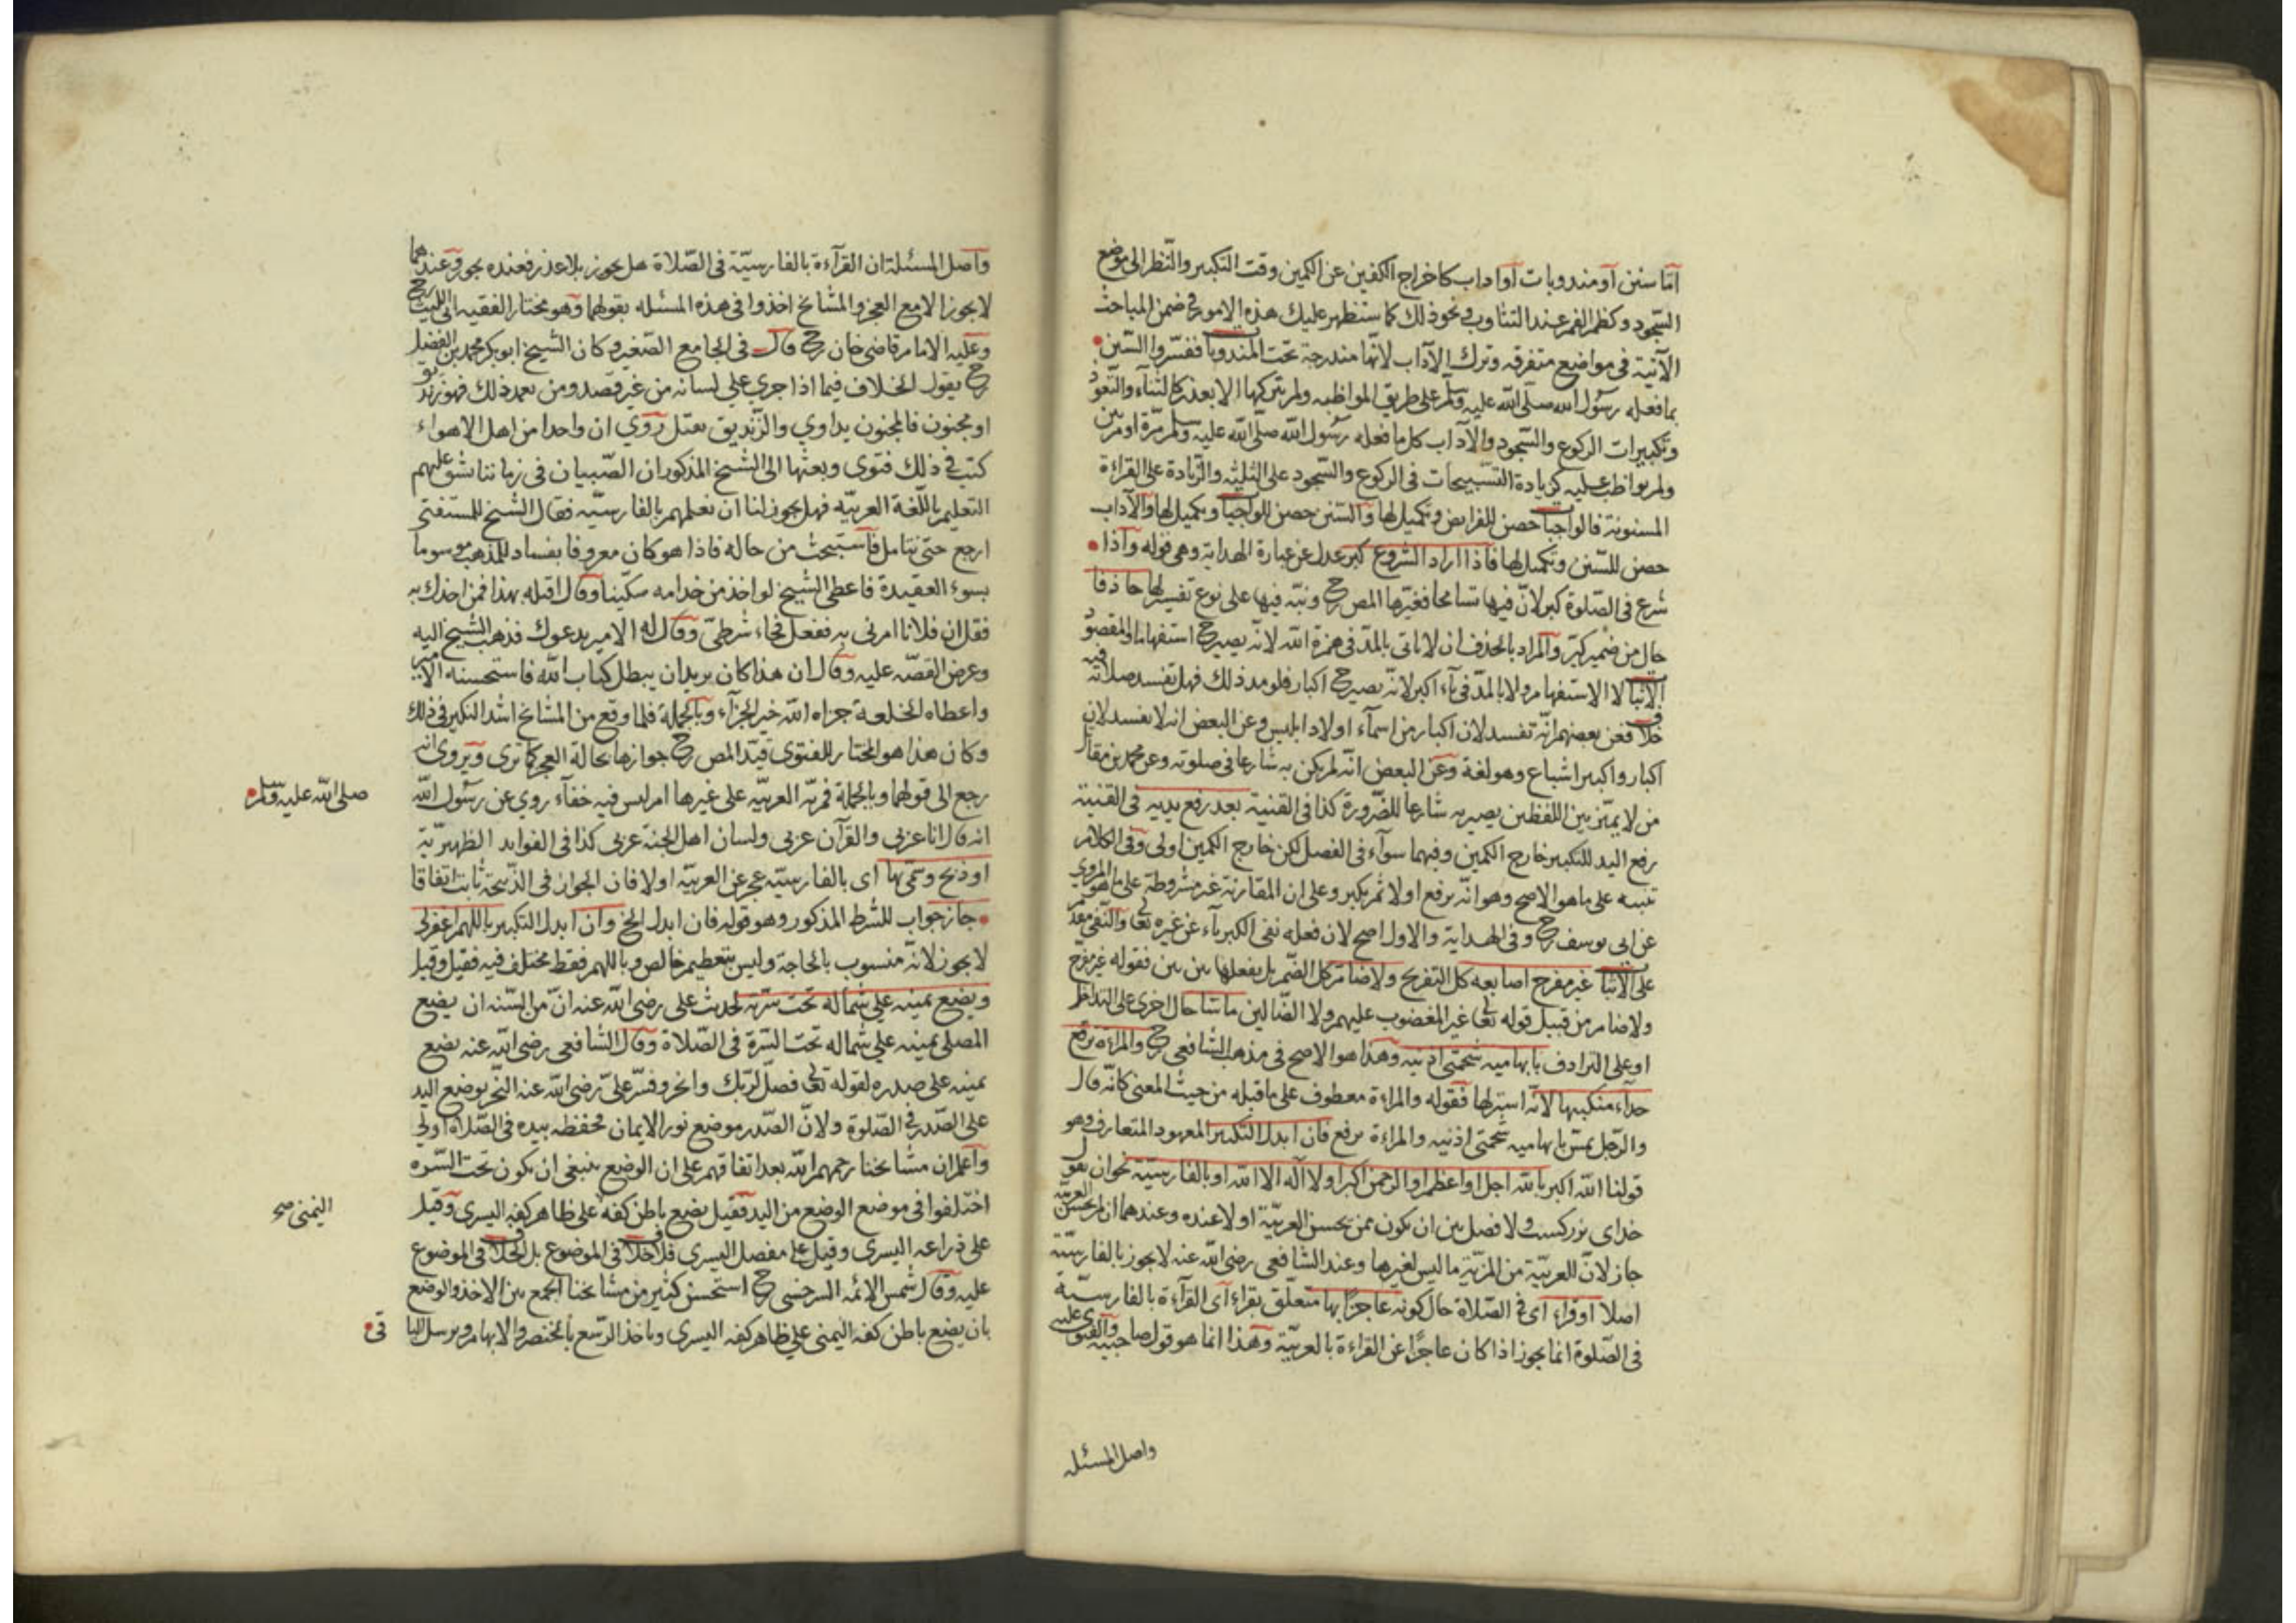 اما سنن او مندوبات او اداب كاخراج الكفين عن الكمين وقت التكبير والنظر الى موضع
السجود وكظم الفم عند التثاوب ونحو ذلك كما ستظهر عليك هذه الامور فى ضمن المباحث
الآتية فى مواضع متفرقه وترك الآداب لانها مندرجة تحت المندوبا ففسروا السنن
بما فعله رسول الله صلى الله عليه وسلم على طريق المواظبه ولم يتركها الا بعذر كالثناء والتعوذ
وتكبيرات الركوع والسجود والآداب كل ما فعله رسول الله صلى الله عليه وسلم مرة او مرتين
ولم يواظب عليه كزيادة التسبيحات فى الركوع والسجود على الثلثه والزيادة على القراءة
المسنونة فالواجبا حصن للفرايض وتكميل لها والسنن حصن للواجبا وتكميل لها والآداب
حصن للسنن وتكميل لها فاذا اراد الشروع كبر عدل عن عبارة الهداية وهى قوله واذا
شرع فى الصلوة كبر لان فيها تسامحا فغيرها المص رح ونبه فيها على نوع تفسير لها حاذفا
حال من ضمير كبر والمراد بالحذف ان لا ياتى بالمد فى همزة الله لانه يصير ح استفهاما والمقصو
الاثبا لا الاستفهام ولا بالمد فى باء اكبر لانه يصير ح اكبار فلو مد ذلك فهل تفسد صلاته فيه
خلا فعن بعضهم انه تفسد لان اكبار من اسماء اولاد ابليس وعن البعض انه لا يفسد لان
اكبار واكبر اشباع وهو لغة وعن البعض انه لم يكن به شارعا فى صلوته وعن محمد بن مقاتل
من لا يميز بين اللفظين يصير به شارعا للضرورة كذا فى القنية بعد رفع يديه فى القنية
رفع اليد للتكبير خارج الكمين وفيهما سوآء فى الفصل لكن خارج الكمين اولى وفى الكلام
تنبيه على ما هو الاصح وهو انه يرفع اولا ثم يكبر وعلى ان المقارنة غير مشروطة على ما هو المروي
عن ابى يوسف رح وفى الهداية والاول اصح لان فعله نفى الكبرياء عن غيره تعا والنفى مقدم
على الاثبا غير مفرج اصابعه كل التفريج ولا ضام كل الضم بل يفعلها بين بين فقوله غير مفرج
ولا ضام من قبيل قوله تعا غير المغضوب عليهم ولا الضالين ماسا حال اخرى على التداخل
او على الترادف بابهاميه شحمتى اذنيه وهذا هو الاصح فى مذهب الشافعى رح والمراءة ترفع
حذاء منكبيها لانه استر لها فقوله والمراءة معطوف على ما قبله من حيث المعنى كانه قال
والرجل يمس بابهاميه شحمتى اذنيه والمراءة ترفع فان ابدل التكبير المعهود المتعارف وهو
قولنا الله اكبر بالله اجل او اعظم او الرحمن اكبر او لا اله الا الله او بالفارسية نحو ان يقول
خداى بزركست ولا فصل بين ان يكون ممن يحسن العربية او لا عنده وعندهما ان لم يحسن العربية
جاز لان للعربية من المزية ما ليس لغيرها وعند الشافعى رضى الله عنه لا يجوز بالفارسية
اصلا او قراء اى فى الصلاة حال كونه عاجزا بها متعلق بقراء اى القرآءة بالفارسية
فى الصلوة انما يجوز اذا كان عاجزا عن القراءة بالعربية وهذا انما هو قول صاحبيه والفتوى عليه
واصل المسئله
واصل المسئلة ان القرآءة بالفارسية فى الصلاة هل يجوز بلا عذر فعنده يجوز وعندهما
لا يجوز الا مع العجز والمشائخ اخذوا فى هذه المسئله بقولهما وهو مختار الفقيه ابى الليث رح
وعليه الامام قاضى خان رح قال فى الجامع الصغير وكان الشيخ ابو بكر محمد بن الفضل
رح يقول الخلاف فيما اذا جرى على لسانه من غير قصد ومن تعمد ذلك فهو زنديق
او مجنون فالمجنون يداوي والزنديق يقتل روي ان واحدا من اهل الاهواء
كتب فى ذلك فتوى وبعثها الى الشيخ المذكور ان الصبيان فى زماننا شق عليهم
التعليم باللغة العربيه فهل يجوز لنا ان نعلمهم بالفارسيه فقال الشيخ للمستفتى
ارجع حتى نتامل فاستبحث من حاله فاذا هو كان معروفا بفساد المذهب موسوما
بسوء العقيدة فاعطى الشيخ لواحد من خدامه سكينا وقال اقتله بهذا فمن اخذك به
فقل ان فلانا امرنى به ففعل فجاء شرطى وقال له الامير يدعوك فذهب الشيخ اليه
وعرض القصه عليه وقال ان هذا كان يريد ان يبطل كتاب الله فاستحسنه الامير
واعطاه الخلعة جزاه الله خير الجزآء وبالجملة فلما وقع من المشائخ اشد النكير فى ذلك
وكان هذا هو المختار للفتوى قيد المص رح جوازها بحالة العجز كما ترى ويروى انه
رجع الى قولهما وبالجملة فمزية العربيه على غيرها امر ليس فيه خفآء روي عن رسول الله
صلى الله عليه وسلم
انه قال انا عربى والقرآن عربى ولسان اهل الجنة عربى كذا فى الفوايد الظهيرية
او ذبح وسمى بها اى بالفارسيه عجز عن العربيه او لا فان الجواز فى الذبيحة ثابت اتفاقا
جاز جواب للشرط المذكور وهو قوله فان ابدل الخ وان ابدل التكبير باللهم اغفر لى
لا يجوز لانه منسوب بالحاجة وليس بتعظيم خالص وباللهم فقط مختلف فيه فقيل وقيل
ويضع يمينه على شماله تحت سرته لحديث على رضى الله عنه ان من السنه ان يضع
المصلى يمينه على شماله تحت السرة فى الصلاة وقال الشافعى رضى الله عنه يضع
يمينه على صدره لقوله تعا فصل لربك وانحر وفسر على رضى الله عنه النحر بوضع اليد
على الصدر فى الصلوة ولان الصدر موضع نور الايمان فحفظه بيده فى الصلاة اولى
واعلم ان مشائخنا رحمهم الله بعد اتفاقهم على ان الوضع ينبغى ان يكون تحت السره
اختلفوا فى موضع الوضع من اليد فقيل يضع باطن كفه على ظاهر كفه اليسرى وقيل
اليمنى صح
على ذراعه اليسرى وقيل على مفصل اليسرى فلا خلا فى الموضوع بل الخلا فى الموضوع
عليه وقال شمس الائمه السرخسى رح استحسن كثير من مشائخنا الجمع بين الاخذ والوضع
بان يضع باطن كفه اليمنى على ظاهر كفه اليسرى وياخذ الرسغ بالخنصر والابهام ويرسل البا
قى